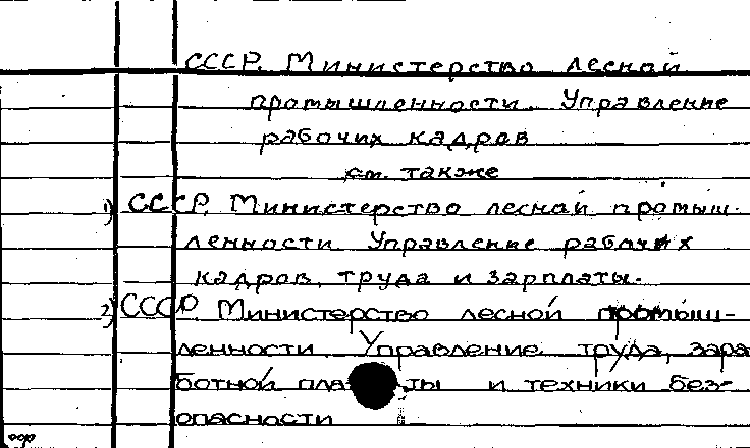 СССР. Министерство лесной
промышленности. Управление
рабочих кадров
см. также
1) СССР. Министерство лесной промыш-
ленности Управление рабочих
кадров, труда и зарплаты.
2) СССР. Министерство лесной промыш-
ленности. Управление труда, зара
ботной платы и техники без-
опасности